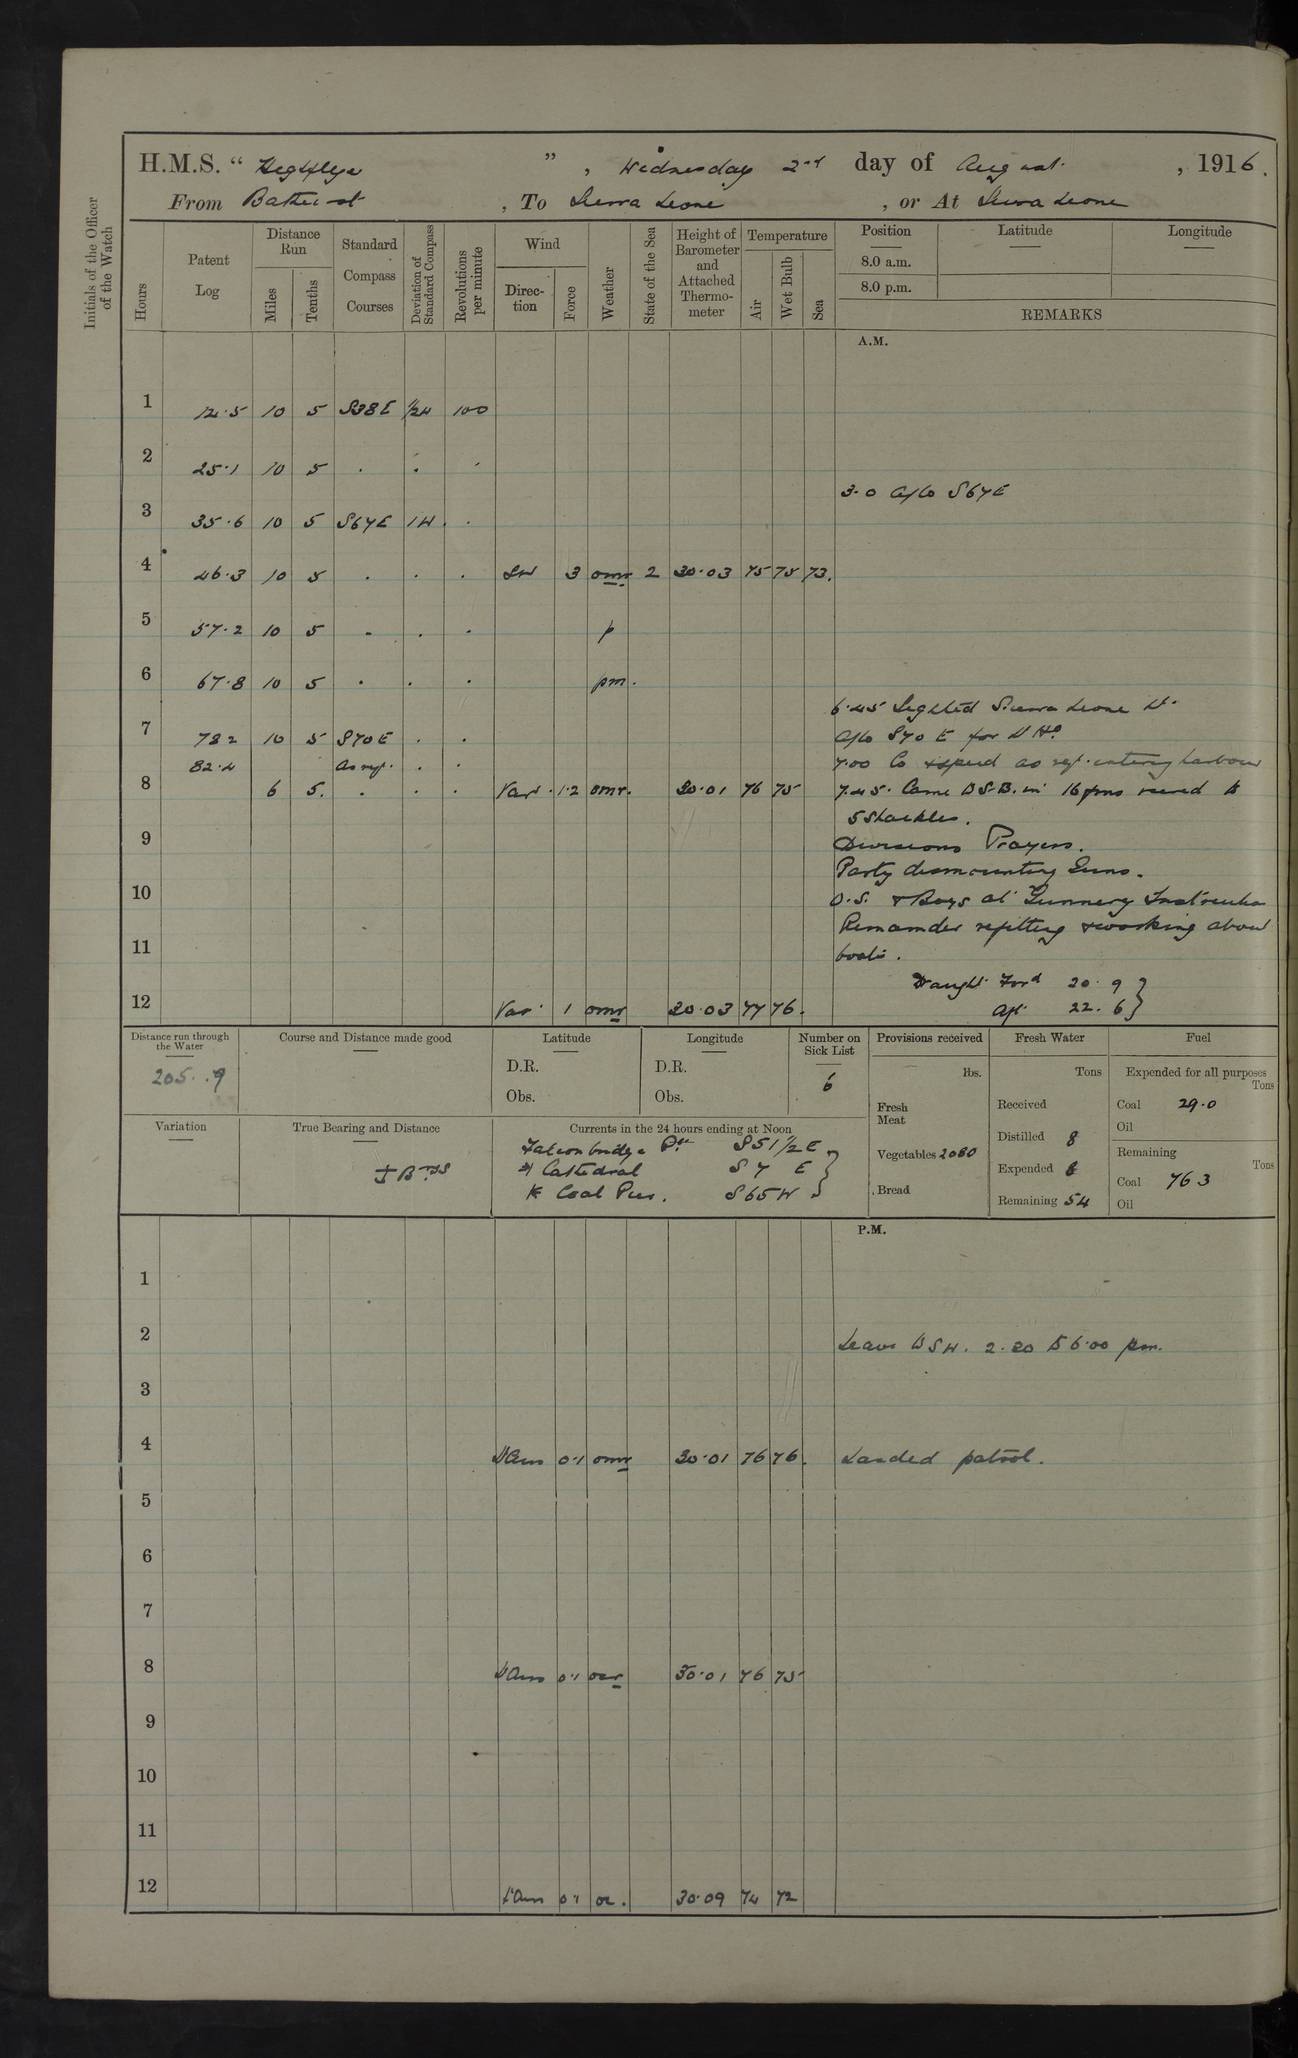 H.M.S. " Highflyer ", Wednesday 2nd day of August, 1916.
From Bathurst, To Sierra Leone, or At Sierra Leone
Initials of the Officer of the Watch
Hours
Patent Log
Distance Run
Miles
Tenths
Standard Compass Courses
Deviation of Standard Compass
Revolutions per minute
Wind
Direction
Force
Weather
State of the Sea
Height of Barometer and Attached Thermometer
Temperature
Air
Wet Bulb
Sea
Position
Latitude
Longitude
8.0 a.m.
8.0 p.m.
REMARKS
A.M.
1 14.5 10 5 S38E 1/2W 100
2 25.1 10 5 . . .
3.0 a/co S67E
3 35.6 10 5 S67E 1W .
4 46.3 10 5 . . . SW 3 omr 2 30.03 75 75 73.
5 57.2 10 5 . . . p
6 67.8 10 5 . . . pm.
6.45 Sighted Sierra Leone Lt.
7 78 2 10 5 S70E . . a/co S70E for Lt Ho
82.4 As req. . . 7.00 Co & speed as req. entering harbour
8 6 5. . . . Var. 1.2 omr. 30.01 76 75 7.45. Came B.S.B. in 16 fms veered to
5 Shackles.
9 Divisions Prayers.
Party dismounting Guns.
10 O.S. & Boys at Gunnery Instruction
Remainder refitting & working about
11 boats.
Draught For'd 20.9
12 Var. 1 omr 30.03 77 76. Aft 22.6
Distance run through the Water
205.9
Course and Distance made good
Latitude
D.R.
Obs.
Longitude
D.R.
Obs.
Number on Sick List
6
Provisions received
lbs.
Fresh Meat
Vegetables 2080
Bread
Fresh Water
Tons
Received
Distilled 8
Expended 6
Remaining 54
Fuel
Expended for all purposes
Tons
Coal 29.0
Oil
Remaining
Tons
Coal 763
Oil
Variation
True Bearing and Distance
Brgs
Currents in the 24 hours ending at Noon
Falconbridge Pt S51 1/2 E
Cathedral S 7 E
Coal Pier. S65W
P.M.
1
2 Leave W S W. 2.30 to 6.00 pm.
3
4 Airs 0.1 omr 30.01 76 76. Landed patrol.
5
6
7
8 Airs 0.1 ocr 30.01 76 75
9
10
11
12 Airs 0.1 oc. 30.09 74 72